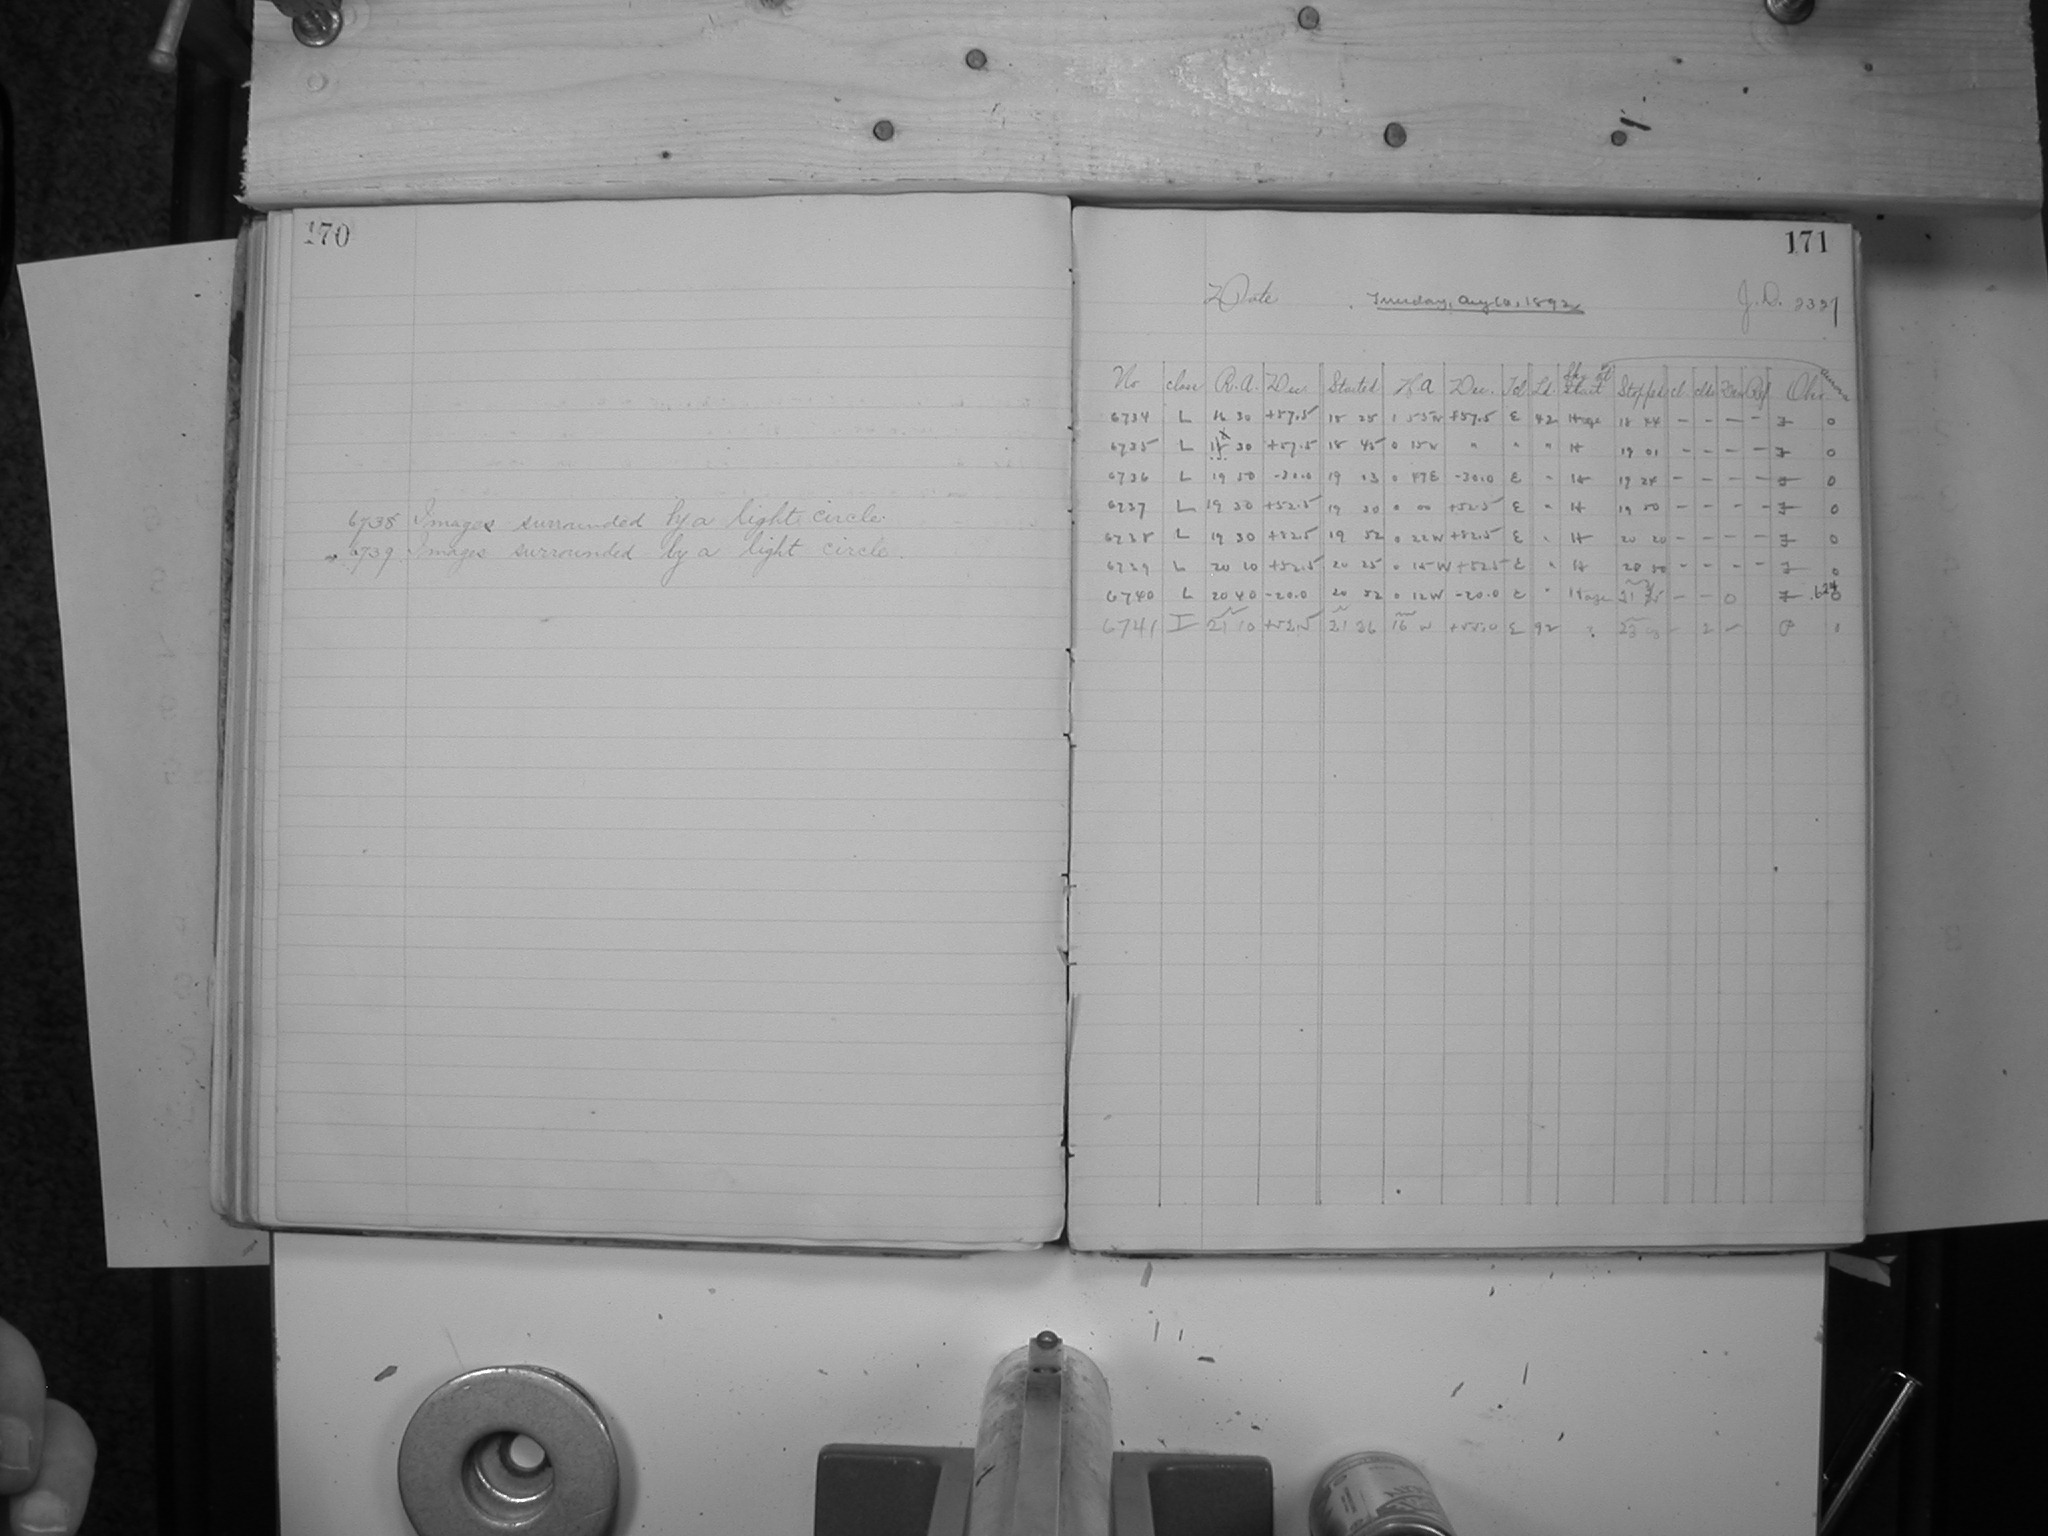 170
6738 Images surrounded by a light circle.
6739 Images surrounded by a light circle.
171
Date Tuesday, Aug 1892 J.D. 2321
No class R.A. Dec. Started H A Dec. Tel Ld Sky at Start Stopped cl clds Dew Ref Obs
6734 L 16 30 +57.5 18 25 1 55W +57.5 E 42 Haze 18 44 - - - - F 0
6735 L 30 +57.5 18 45 0 15W " " " H 19 01 - - - - F 0
6736 L 19 50 -30.0 19 03 0 47E -30.0 E " H 19 24 - - - - F 0
6737 L 19 30 +52.5 19 30 0 00 +52.5 E " H 19 50 - - - - F 0
6738 L 19 30 +52.5 19 52 0 22W +52.5 E " H 20 20 - - - - F 0
6739 L 20 10 +52.5 20 25 0 15W +52.5 E " H 20 50 - - - - F 0
6740 L 20 40 -20.0 20 52 0 12W -20.0 E " Haze 21 - - 0 F 0
6741 I 21 10 +52.5 21 26 16 W +55.0 E 92 " 23 03 - 2 - P 0